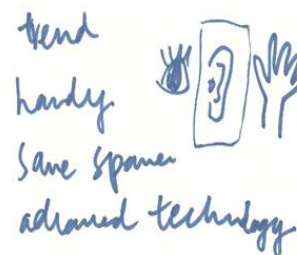 trend
handy
save
advanced technology